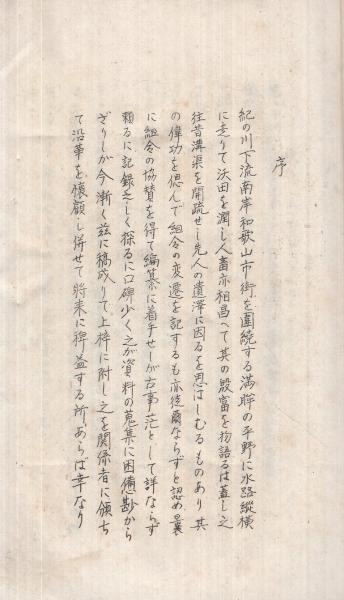 序
紀の川下流南岸和歌山市街を圍繞する満眸の平野に水路縱横
に走りて沃田を潤し人畜亦相昌へて其の殷富を物語るは蓋し之
往昔溝渠を開疏せし先人の遺澤に因るを思はしむるものあり其
の偉功を偲んで組合の変遷を記するも亦徒爾ならずと認め曩
に組合の協賛を得て編纂に着手せしが古事茫として詳ならず
頼るに記録乏しく探るに口碑少く之が資料の蒐集に困憊尠から
ざりしが今漸く茲に稿成りて上梓に附し之を関係者に頒ち
て沿革を懐顧し併せて将来に稗益する所あらば幸なり